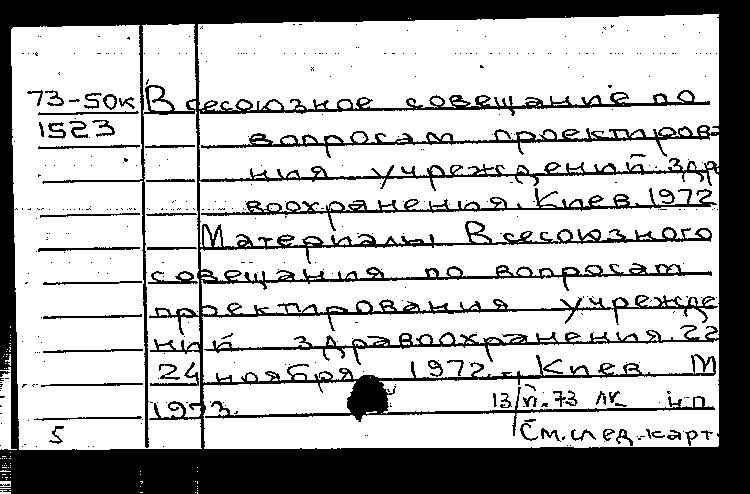 73-50к Всесоюзное совещание по
1523 вопросам проектирова
ния учреждений здр
воохранения. Киев. 1972
Материалы Всесоюзного
совещания по вопросам
проектирования учрежде
ний здравоохранения. 22
24 ноября 1972 г., Киев. М
1973.
13/VI-73 ЛК н.п
5 См. след. карт.